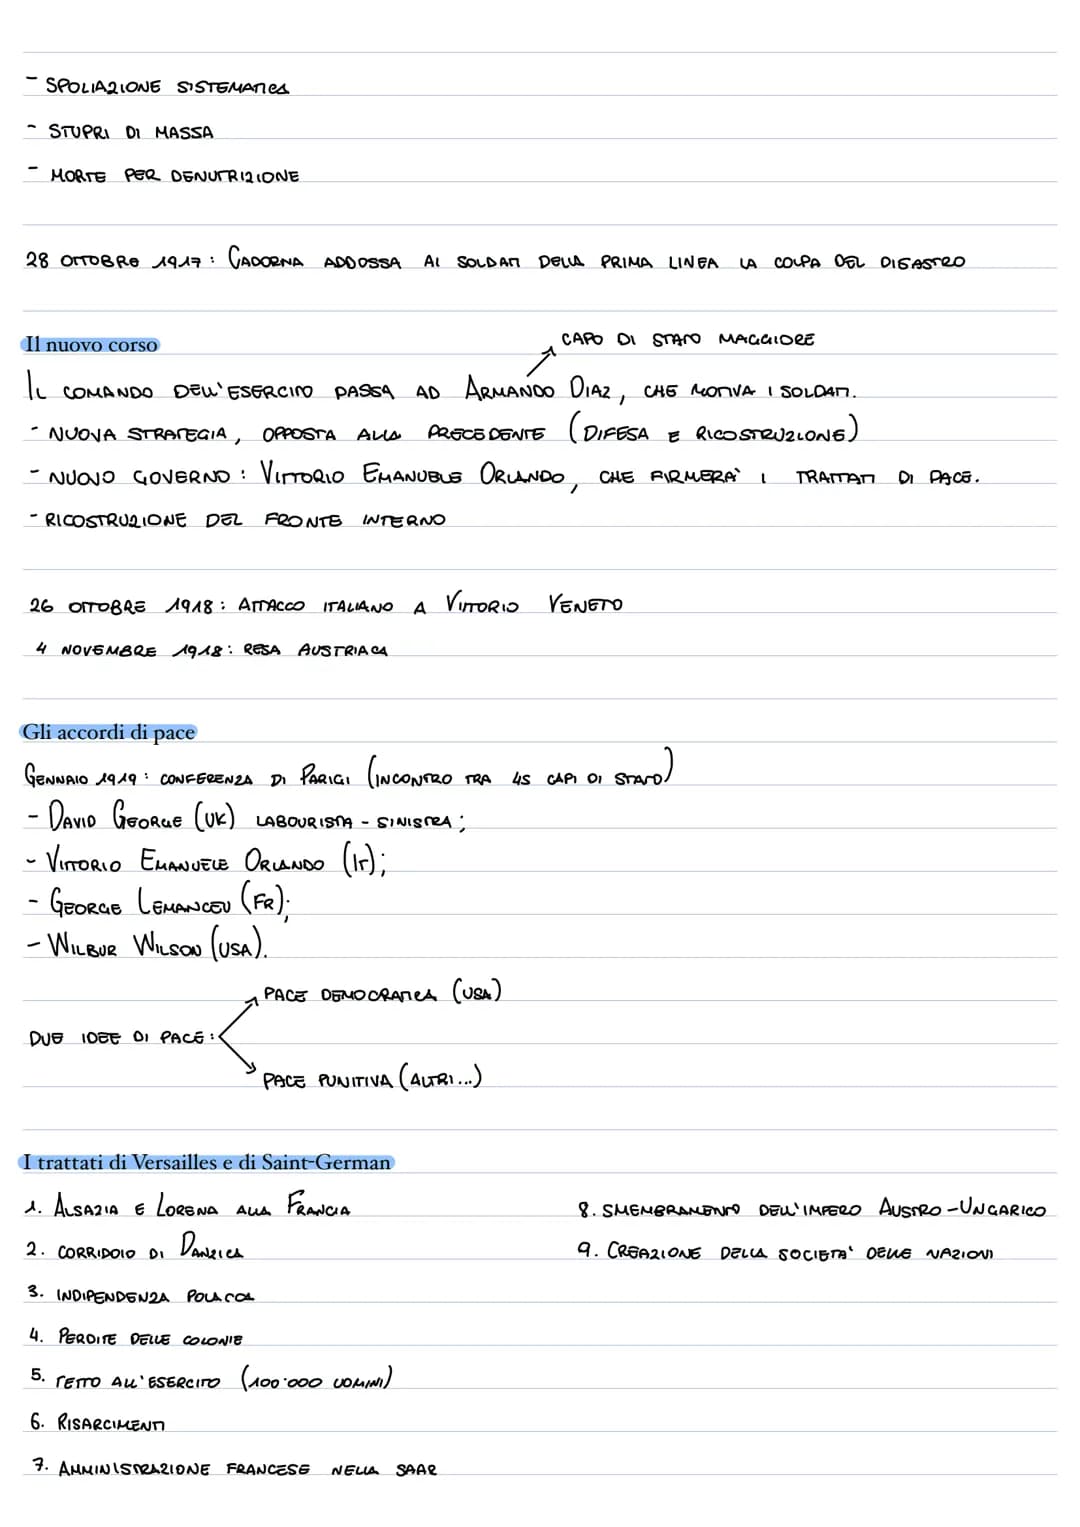 - SPOLIAZIONE SISTEMATICA
- STUPRI DI MASSA
- MORTE PER DENUTRIZIONE
28 OTTOBRE 1917: CADORNA ADDOSSA AI SOLDATI DELLA PRIMA LINEA LA COLPA DEL DISASTRO
Il nuovo corso
CAPO DI STATO MAGGIORE
IL COMANDO DELL'ESERCITO PASSA AD ARMANDO DIAZ, CHE MOTIVA I SOLDATI.
- NUOVA STRATEGIA, OPPOSTA ALLA PRECEDENTE (DIFESA E RICOSTRUZIONE)
- NUOVO GOVERNO: VITTORIO EMANUELE ORLANDO, CHE FIRMERA' I TRATTATI DI PACE.
- RICOSTRUZIONE DEL FRONTE INTERNO
26 OTTOBRE 1918: ATTACCO ITALIANO A VITTORIO VENETO
4 NOVEMBRE 1918: RESA AUSTRIACA
Gli accordi di pace
GENNAIO 1919: CONFERENZA DI PARIGI (INCONTRO TRA 45 CAPI DI STATO)
- DAVID GEORGE (UK) LABOURISTA - SINISTRA;
- VITTORIO EMANUELE ORLANDO (IT);
- GEORGE LEMANCEU (FR);
- WILBUR WILSON (USA).
PACE DEMOCRATICA (USA)
DUE IDEE DI PACE:
PACE PUNITIVA (ALTRI...)
I trattati di Versailles e di Saint-German
1. ALSAZIA E LORENA ALLA FRANCIA
2. CORRIDOIO DI DANZICA
3. INDIPENDENZA POLACCA
4. PERDITE DELLE COLONIE
5. TETTO ALL'ESERCITO (100'000 UOMINI)
6. RISARCIMENTI
7. AMMINISTRAZIONE FRANCESE NELLA SAAR
8. SMEMBRAMENTO DELL'IMPERO AUSTRO-UNGARICO
9. CREAZIONE DELLA SOCIETA' DELLE NAZIONI